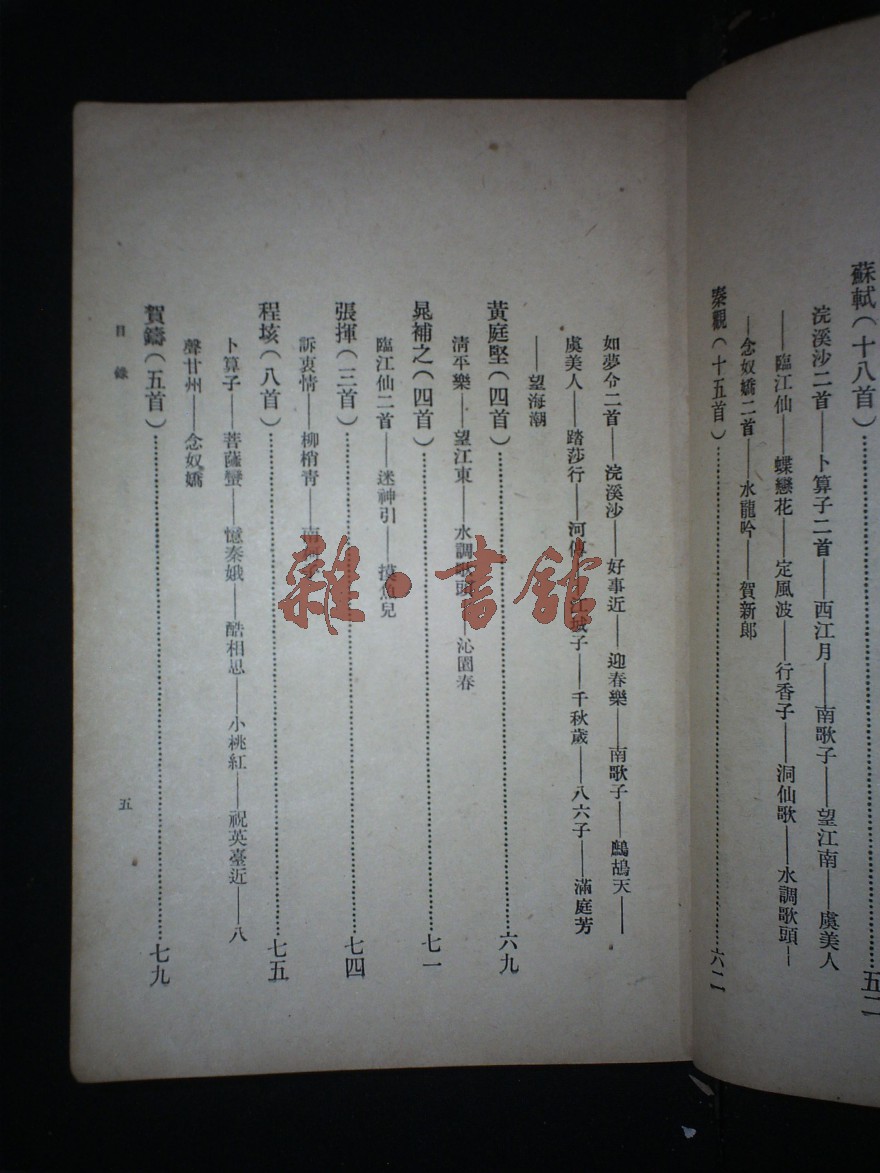 蘇軾(十八首)………五二
浣溪沙二首——卜算子二首——西江月——南歌子——望江南——虞美人
——臨江仙——蝶戀花——定風波——行香子——洞仙歌——水調歌頭—
—念奴嬌二首——水龍吟——賀新郎
秦觀(十五首)………六二
如夢令二首——浣溪沙——好事近——迎春樂——南歌子——鷓鴣天——
虞美人——踏莎行——河傳——江城子——千秋歲——八六子——滿庭芳
——望海潮
黃庭堅(四首)………六九
清平樂——望江東——水調歌頭——沁園春
晁補之(四首)………七一
臨江仙二首——迷神引——摸魚兒
張揮(三首)………七四
訴衷情——柳梢青——南
程垓(八首)………七五
卜算子——菩薩蠻——憶秦娥——酷相思——小桃紅——祝英臺近——八
聲甘州——念奴嬌
賀鑄(五首)………七九
目錄
五
雜·書館